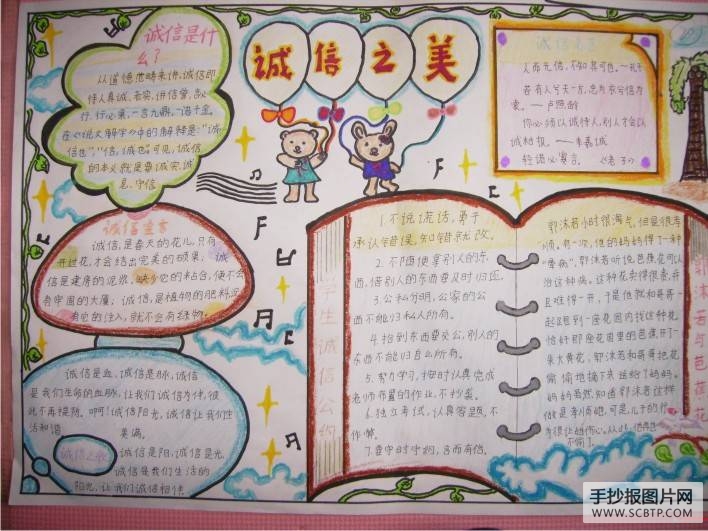 诚信是什
么?
从道德范畴来讲,诚信即
待人真诚、老实、讲信誉,言必
行、行必果,一言九鼎,一诺千金。
在《说文解字》中的解释是:“诚,
信也”,“信,诚也”。可见,诚信
的本义就是要诚实、诚
恳、守信
诚信之美
人而无信,不知其可也。—孔子
若有人兮天一方,忠为衣兮信为
裳。—卢照邻
你必须以诚待人,别人才会以
诚相报。—李嘉诚
轻诺必寡信。 《老子》
诚信宣言
诚信,是春天的花儿,只有
开过花,才会结出完美的硕果;诚
信是建房的泥浆,缺少它的粘合,便不会
有牢固的大厦;诚信,是植物的肥料,没
有它的注入,就不会有绿物。
诚信是血,诚信是脉,诚信
是我们生命的血脉,让我们诚信为伴,彼
此不再提防。啊!诚信阳光,诚信让我们生
活和谐 美满。
诚信之歌
诚信是阳,诚信是光,
诚信是我们生活的
阳光,让我们诚信相伴
学生诚信公约
1.不说谎话,勇于
承认错误,知错就改。
2.不随便拿别人的东
西,借别人的东西要及时归还。
3.公私分明,公家的公
西不能归私人所有。
4.拾到东西要交公,别人的
东西不能归自己所有。
5.努力学习,按时认真完成
老师布置的作业,不抄袭。
6.独立考试,认真答题,不
作弊。
7.遵守时守约,言而有信。
郭沫若小时很淘气,但是很孝
顺。有一次,他的妈妈得了一种
“晕病”,郭沫若听说芭蕉花可以
治这种病。这种花卉得很贵,并
且难得一开,于是他就和哥哥一
起跑到一座花园内找这种花
恰好那座花园里的芭蕉开了一
朵大黄花,郭沫若和哥哥把花
偷偷地摘下来送给了妈妈。
妈妈虽然知道郭沫若这样
做是
郭沫若与芭蕉花
手抄报图片网
WWW.SCBTP.COM